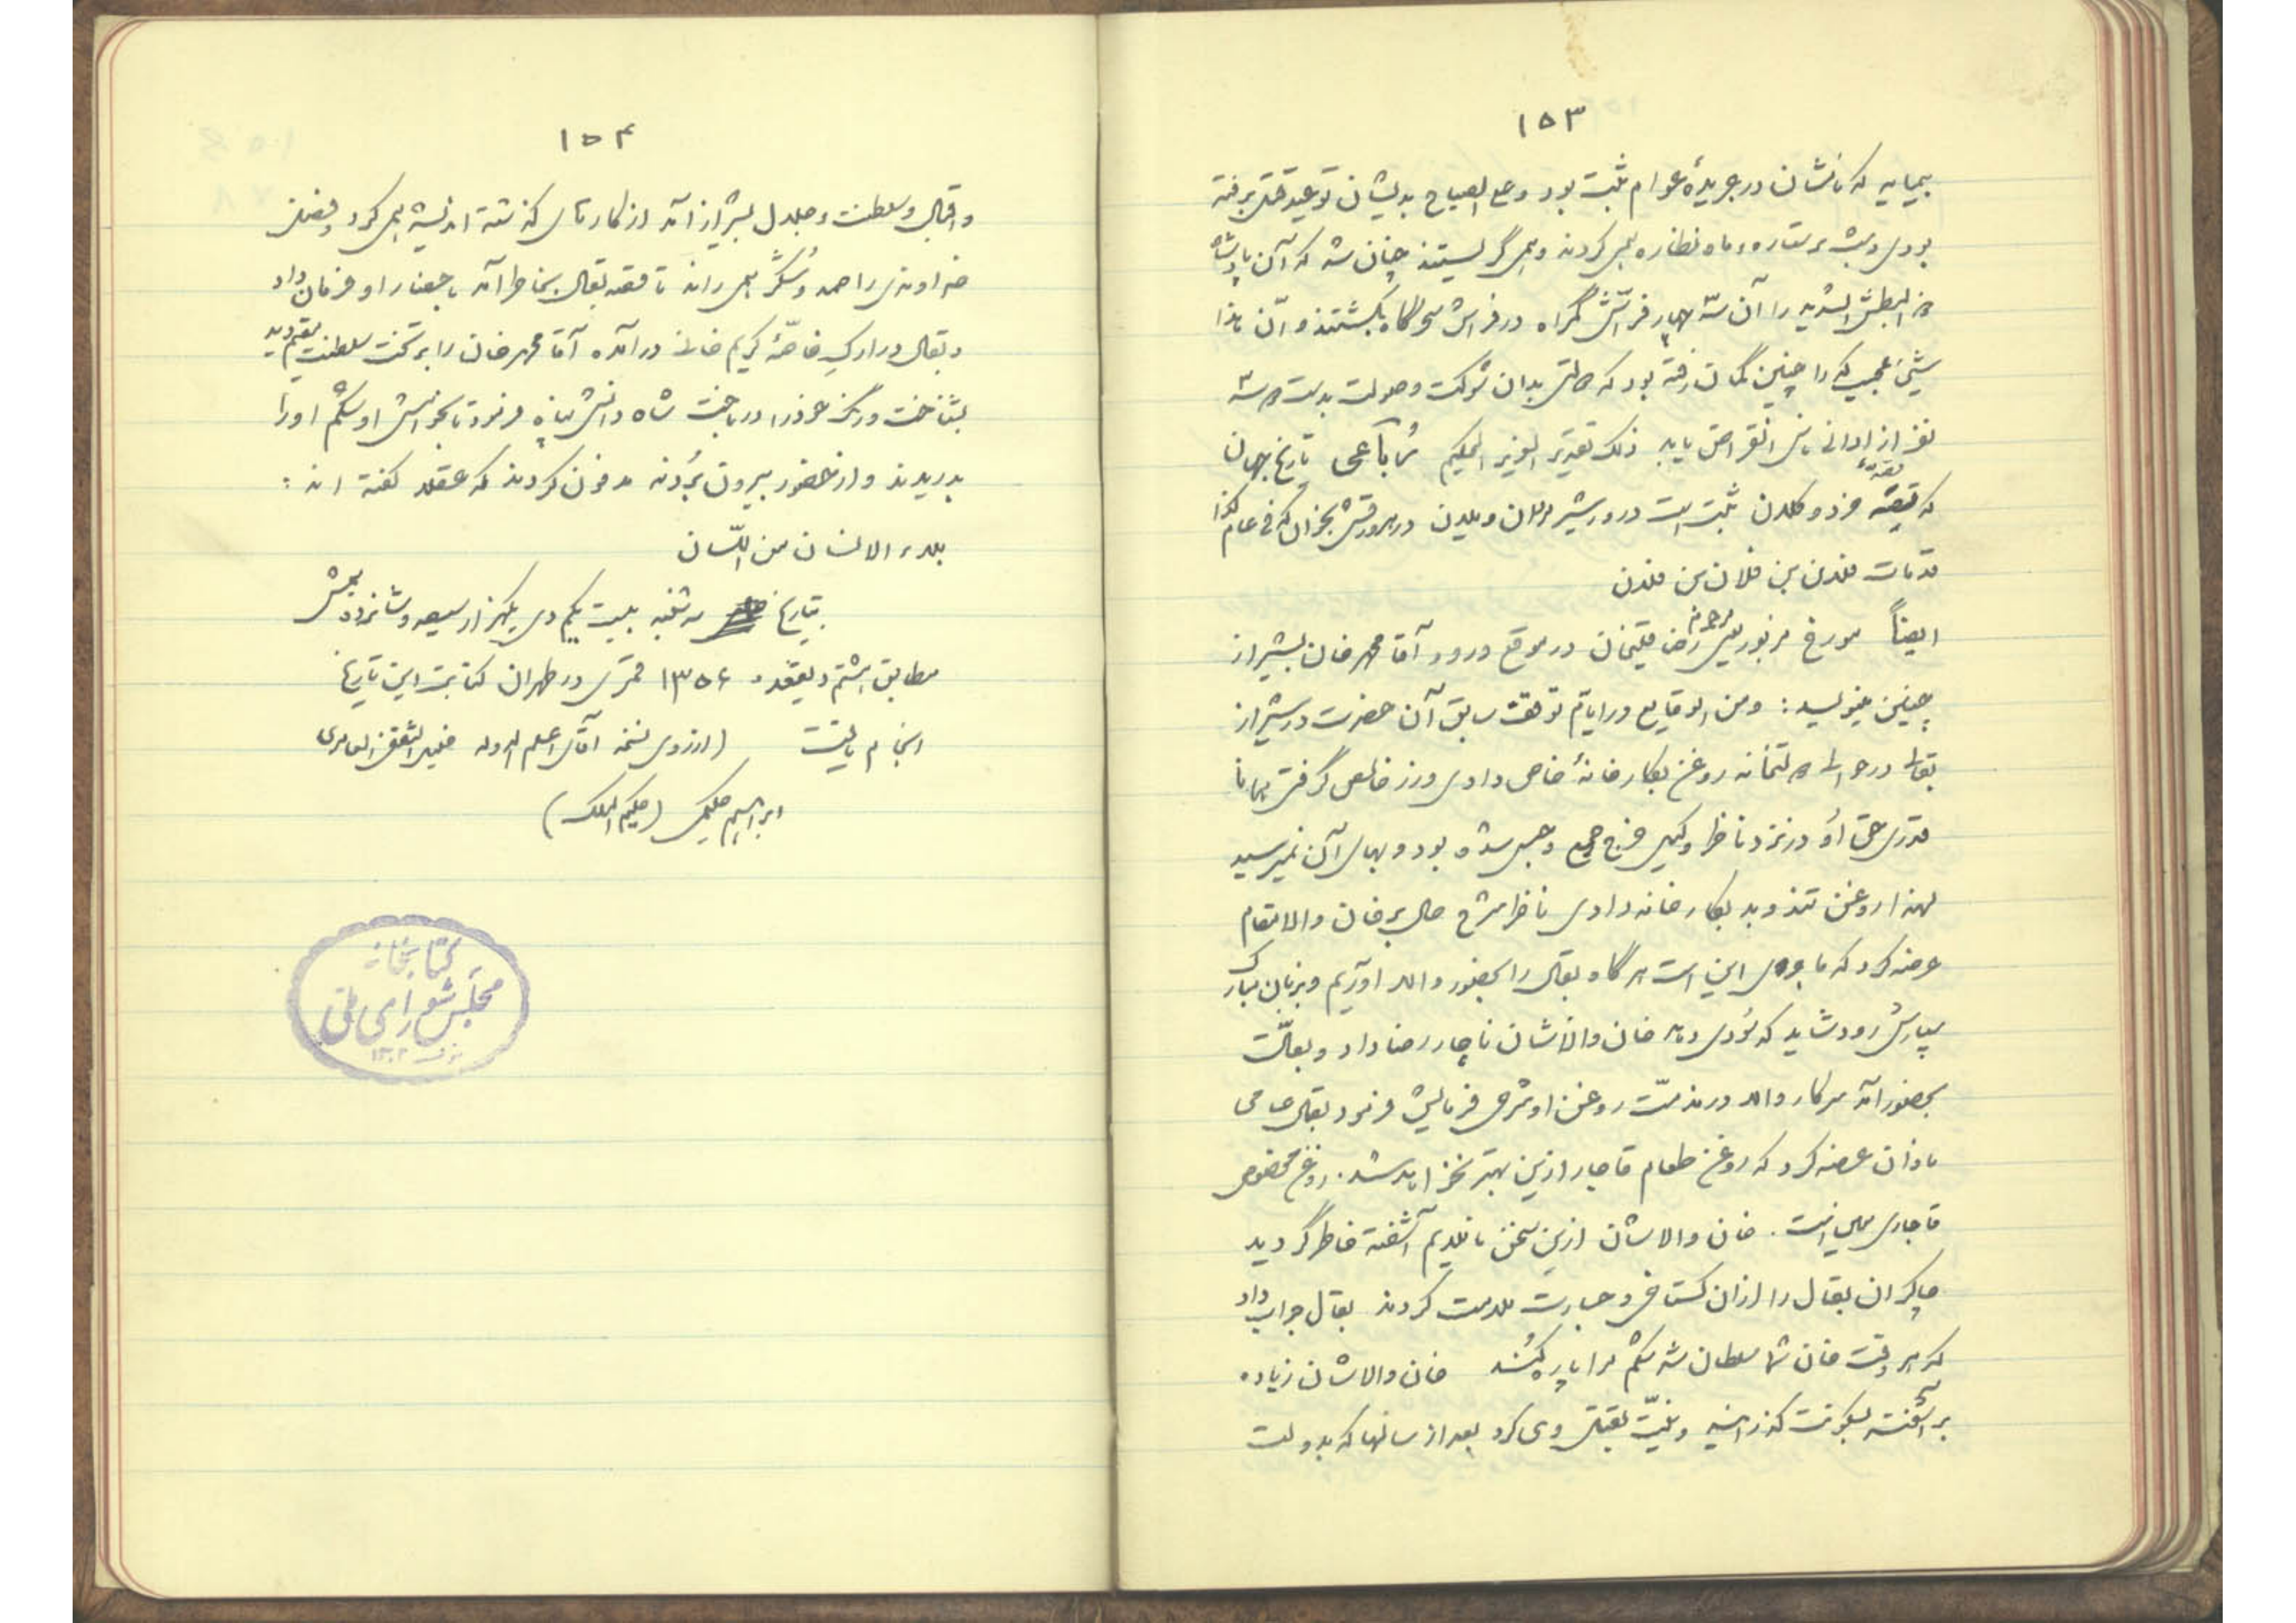 ۱۵۳
که نامشان در جریدهٔ عوام ثبت بود و علی الصباح بدیشان حتی برفته
بودی و شب بر ستاره و ماه نظاره همی کردند و همی گریستند چنان شد که آن پادشاه
البطش الشدید را آن سه چهار فراش گمراه در فراش سحرگاه بکشتند و انّ هذا
شیئ عجیب که را چنین گمان رفته بود که دولتی بدان شوکت و صولت بدست سه
نفر از ادانی ناس انقراض یابد ذلک تقدیر العزیز الحکیم رُباعی تاریخ جهان
که قصّه خرد و کلان ثبت است درو شیر مردان و یلان در هر ورقش بخوان که فی عام کذا
قد مات فلان بن فلان بن فلان
ایضاً مورخ مزبور یعنی مرحوم رضا قلیخان در موقع ورود آقا محمد خان بشیراز
چنین مینویسد: و من الوقایع در ایام توقف سابق آن حضرت در شیراز
بقالی در حوالی دولتخانه روغن بکارخانهٔ خاص دادی و زر خالص گرفتی همانا
قدری حق اُو در نزد ناظر وکیل خرج جمع شده بود و بهای آن نمیرسید
لهذا روغن تند و بد بکارخانه دادی ناظر شرح حال بر خان والا مقام
عرضه کرد که ماجرای این است هرگاه بقال را بحضور والا آوریم و بزبان مبارک
سپارش رود شاید که سُودی دهد خان والاشان ناچار رضا داد و بقال
بحضور آمد سرکار والا در مذمّت روغن او شرحی فرمایش فرمود بقال عامی
نادان عرضه کرد که روغن طعام قاجار ازین بهتر نخواهد شد. روغن مخصوص
قاجاری همین است. خان والاشان ازین سخن ناملایم آشفته خاطر گردید
چاکران بقال را از آن گستاخی و جسارت ملامت کردند بقال جواب داد
که هر وقت خان شما سلطان شد شکم مرا پاره کُنند خان والاشان زیاده
بر آشفت بسکوت گذرانید و نیّت قتل وی کرد بعد از سالها که بدولت
۱۵۴
و اقبال و سلطنت و جلال بشیراز آمد از کارهای گذشته اندیشه همی کرد و فضل
خداوندی را حمد و شُکر همی راند تا قصه بقال بخاطر آمد باحضار او فرمان داد
و بقال در ارک خاصّهٔ کریم خانی در آمده آقا محمد خان را بر تخت سلطنت مقیم دید
بشناخت و رنگ خود را در باخت شاه دانش پناه فرمود تا بخواهش او شکم او را
بدریدند و از حضور بیرون بُردند مدفون کردند که عقلا گفته اند:
بلاء الانسان من اللّسان
بتاریخ سه شنبه بیست یکم دی یکهزار سیصد و شانزده شمسی
مطابق هشتم ذیقعده ۱۳۵۶ قمری در طهران کتابت این تاریخ
انجام یافت (از روی نسخه آقای اعلم الدوله خلیل الثقفی العامری
ابراهیم حکیمی (حکیم الملک)
کتابخانه
مجلس شورای ملی